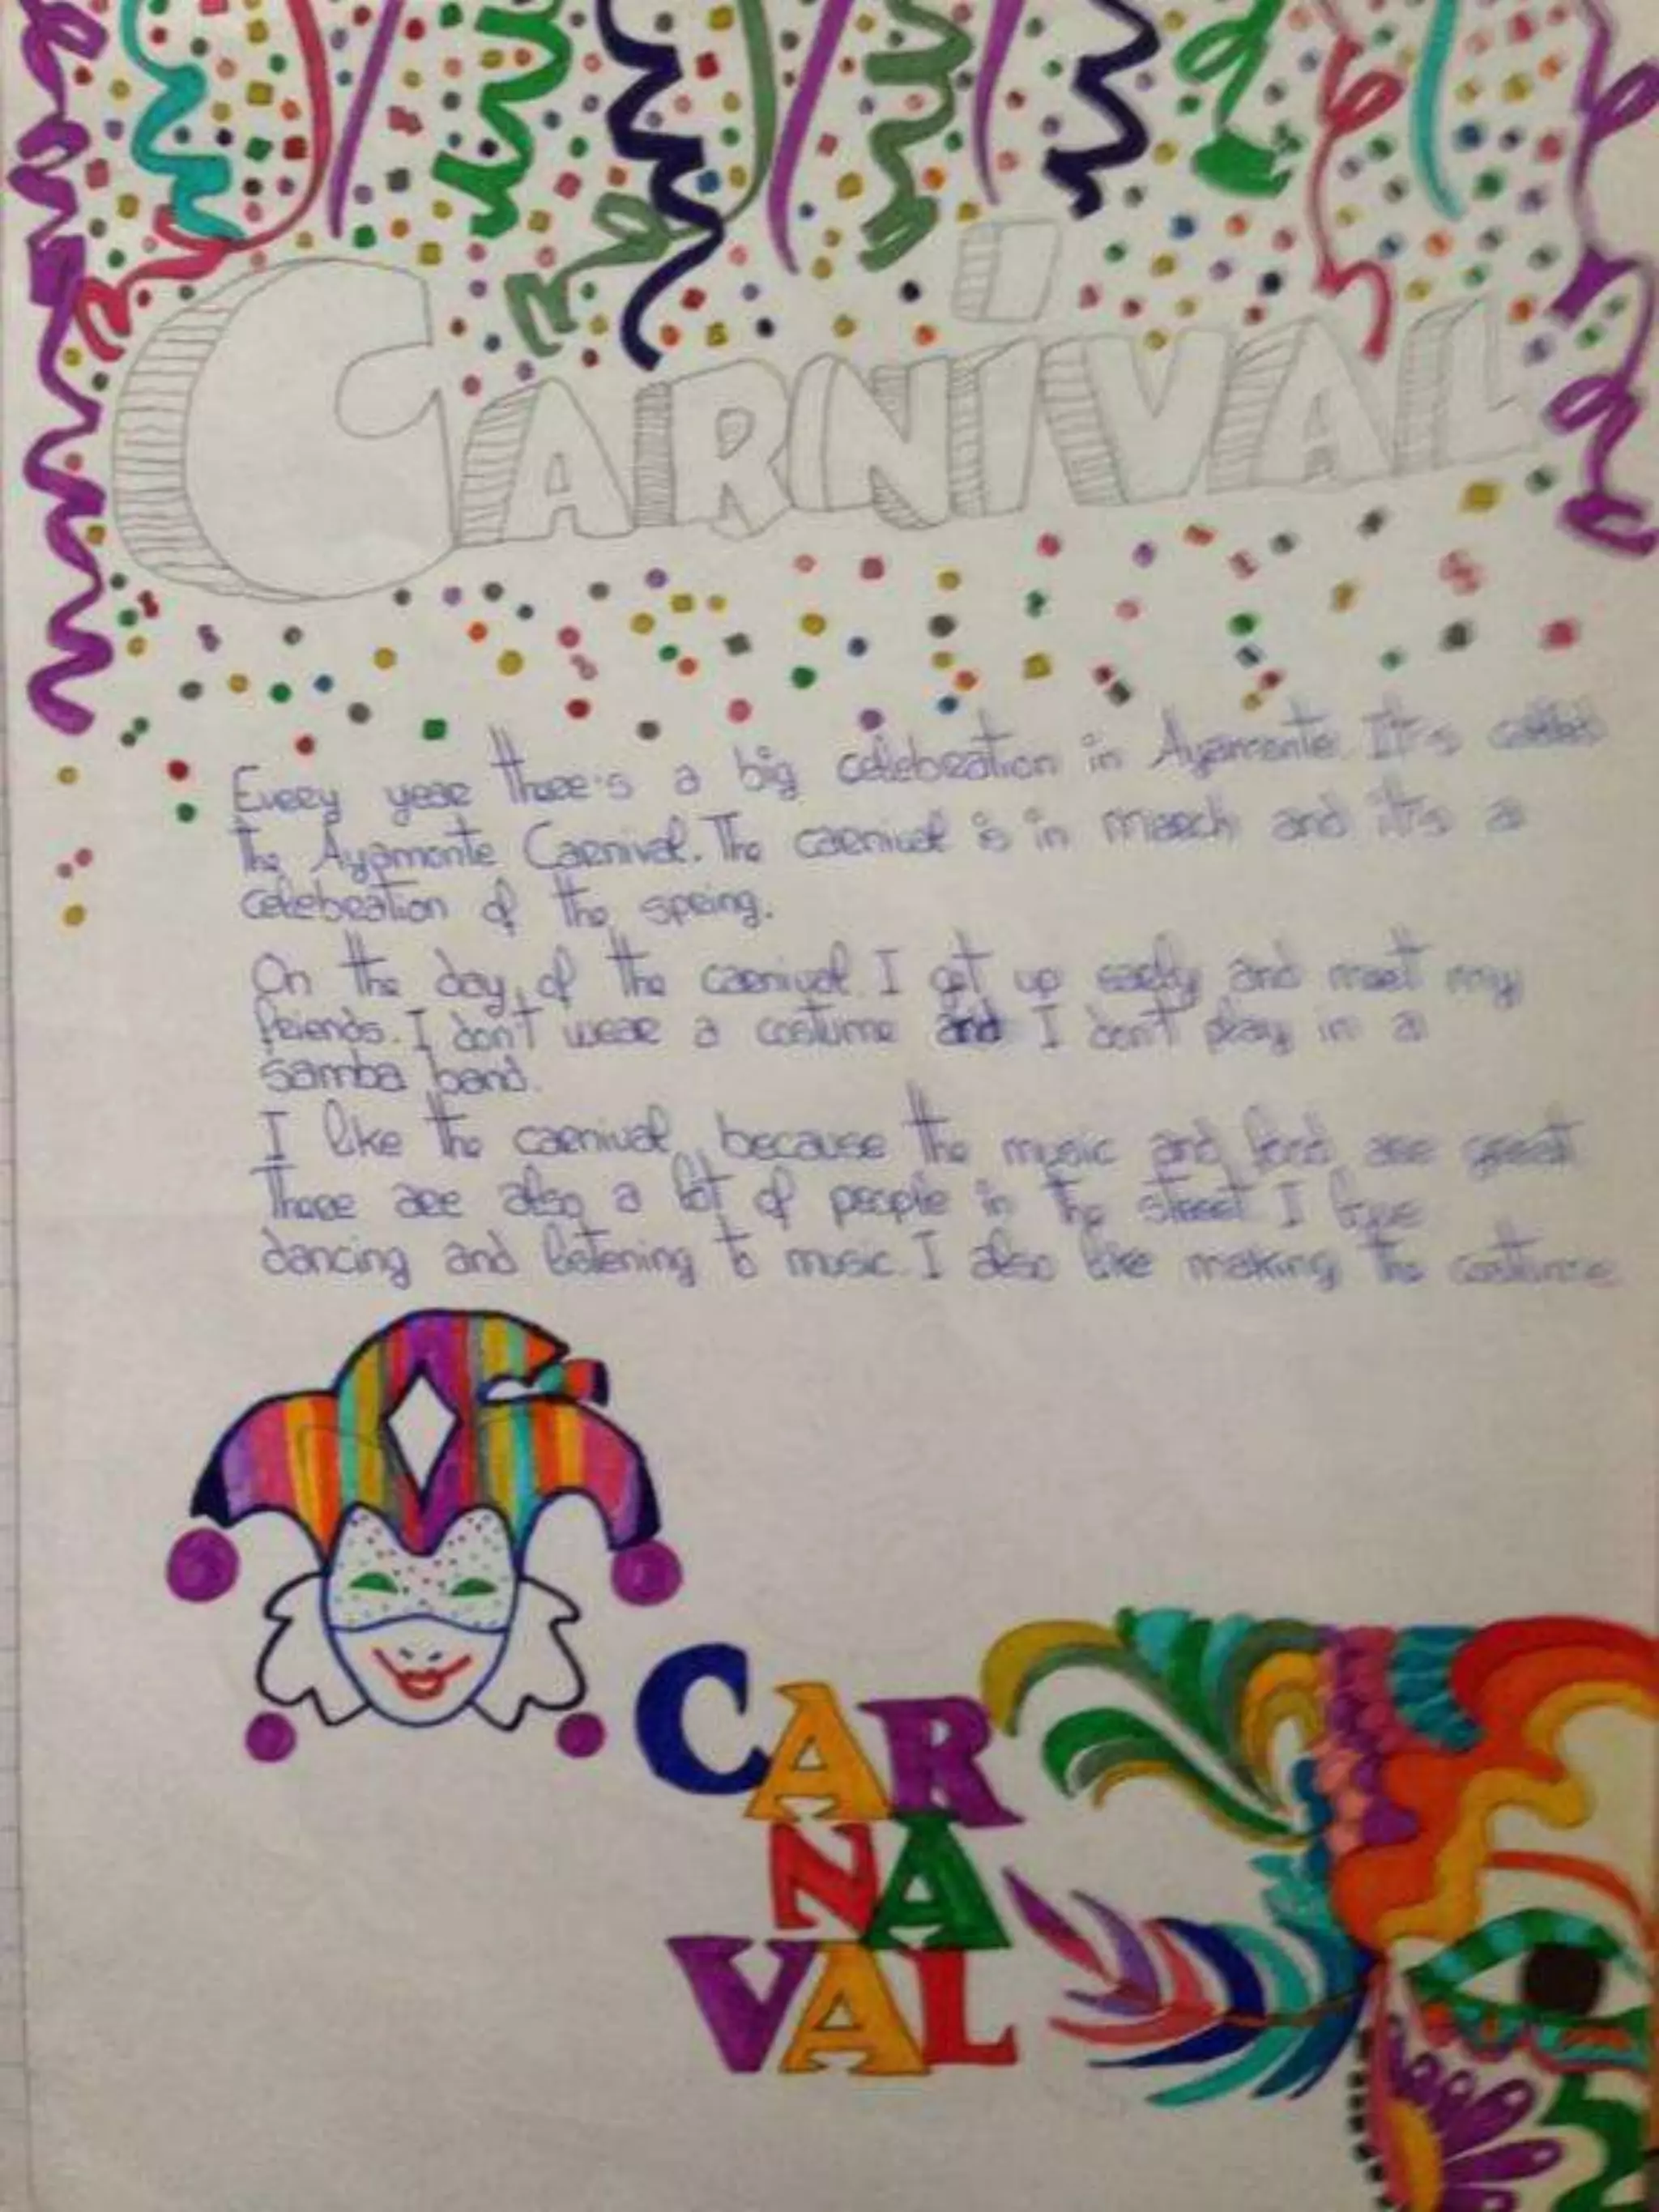 CARNiVAL
Every year there's a big celebration in Ayamonte. It's called
the Ayamonte Carnival. The carnival is in march and it's a
celebration of the spring.
On the day of the carnival I get up early and meet my
friends. I don't wear a costume and I don't play in a
samba band.
I like the carnival, because the music and food are great
There are also a lot of people in the street. I love
dancing and listening to music. I also like making the costume
CAR
NA
VAL